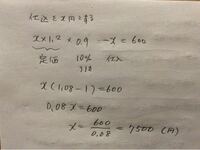 仕込をx円とする
x×1.2×0.9 -x=600
定価 10% 仕入
引き
x(1.08-1)=600
0.08x=600
x=600/0.08=7500(円)